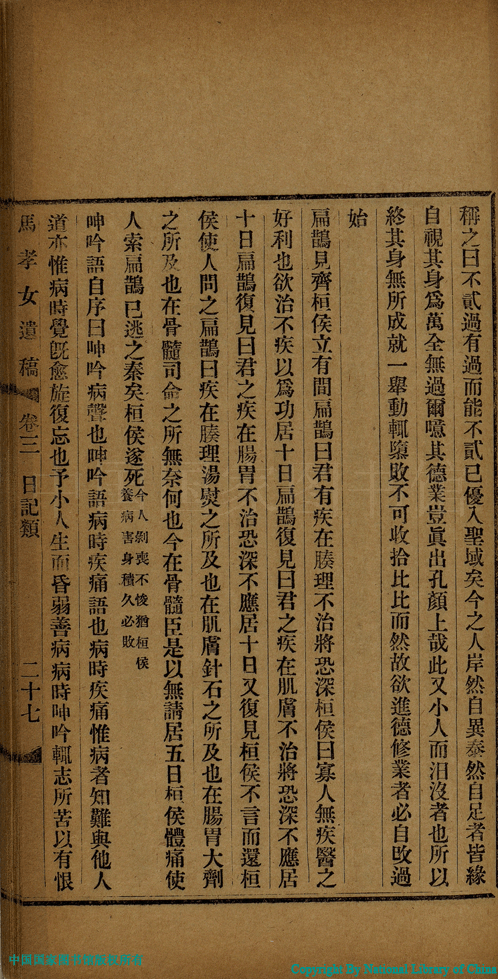 稱之曰不貳過有過而能不貳已優入聖域矣今之人岸然自異泰然自足者皆緣
自視其身爲萬全無過爾噫其德業豈眞出孔顏上哉此又小人而汨沒者也所以
終其身無所成就一舉動輒墮敗不可收拾比比而然故欲進德修業者必自改過
始
扁鵲見齊桓侯立有間扁鵲曰君有疾在腠理不治將恐深桓侯曰寡人無疾醫之
好利也欲治不疾以爲功居十日扁鵲復見曰君之疾在肌膚不治將恐深不應居
十日扁鵲復見曰君之疾在腸胃不治恐深不應居十日又復見桓侯不言而還桓
侯使人問之扁鵲曰疾在腠理湯熨之所及也在肌膚針石之所及也在腸胃大劑
之所及也在骨髓司命之所無奈何也今在骨髓臣是以無請居五日桓侯體痛使
人索扁鵲已逃之秦矣桓侯遂死今人剝喪不悛猶桓侯養病害身積久必敗
呻吟語自序曰呻吟病聲也呻吟語病時疾痛語也病時疾痛惟病者知難與他人
道亦惟病時覺既愈旋復忘也予小人生而昏弱善病病時呻吟輒志所苦以有恨
馬孝女遺稿 卷三 日記類 二十七
中国国家图书馆版权所有
Copyright By National Library of China